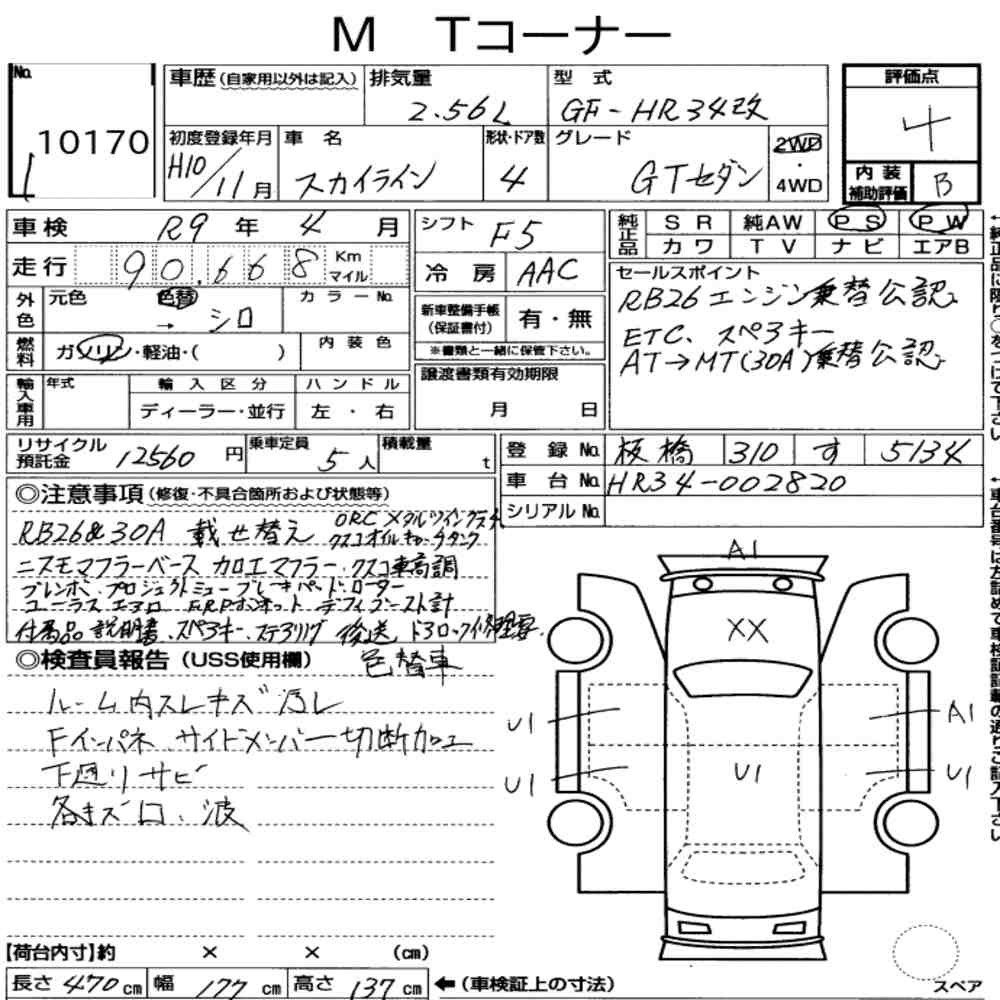 M Tコーナー
No. 10170
1
車歴（自家用以外は記入） 排気量 2.56L 型式 GF-HR34改
初度登録年月 H10/11月 車名 スカイライン 形状・ドア数 4 グレード GTセダン 2WD・4WD
評価点 4
内装補助評価 B
車検 R9年 4月
走行 90,668 Km マイル
シフト F5
冷房 AAC
純正品 SR 純AW PS PW
カワ TV ナビ エアB
外色 元色 色替 → シロ カラーNo.
燃料 ガソリン・軽油・（ ） 内装色
新車整備手帳（保証書付） 有・無
※書類と一緒に保管下さい。
セールスポイント
RB26エンジン乗替公認
ETC、スペアキー
AT→MT(30A)乗替公認
輸入車用 年式 輸入区分 ハンドル
ディーラー・並行 左・右
譲渡書類有効期限
月 日
リサイクル預託金 12560円 乗車定員 5人 積載量 t
登録No. 板橋 310 す 5134
車台No. HR34-002820
シリアルNo.
◎注意事項（修復・不具合箇所および状態等）
RB26&30A 載せ替え ORCメタルツインクラッチ
クスコオイルキャッチタンク
ニスモマフラーベース加工マフラー、クスコ車高調
ブレンボ、プロジェクトミューブレーキパッド、ローター
エアロ FRPボンネット デフィブースト計
付属品 説明書、スペアキー、ステアリング 後送 ドアロック修理要
◎検査員報告（USS使用欄） 色替車
ルーム内スレキズ汚レ
Fインパネ、サイドメンバー切断加工
下廻りサビ
各キズ凹、波
A1
XX
U1
A1
U1
U1
U1
【荷台内寸】約 × × （cm）
長さ 470cm 幅 177cm 高さ 137cm ←（車検証上の寸法）
スペア
←純正品に限り○をつけて下さい
←車台番号は左詰めで車検証記載の通りご記入下さい